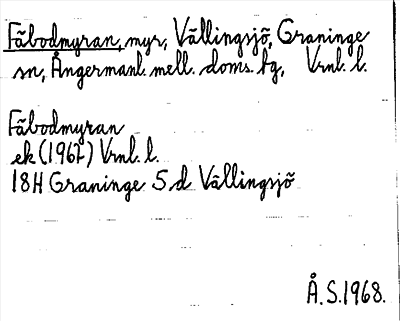 Fäbodmyran, myr, Vällingsjö, Graninge
sn, Ångermanl. mell. doms. tg, Vrnl. l.
Fäbodmyran
ek (1967) Vrnl. l.
18H Graninge 5 d Vällingsjö
Å.S. 1968.